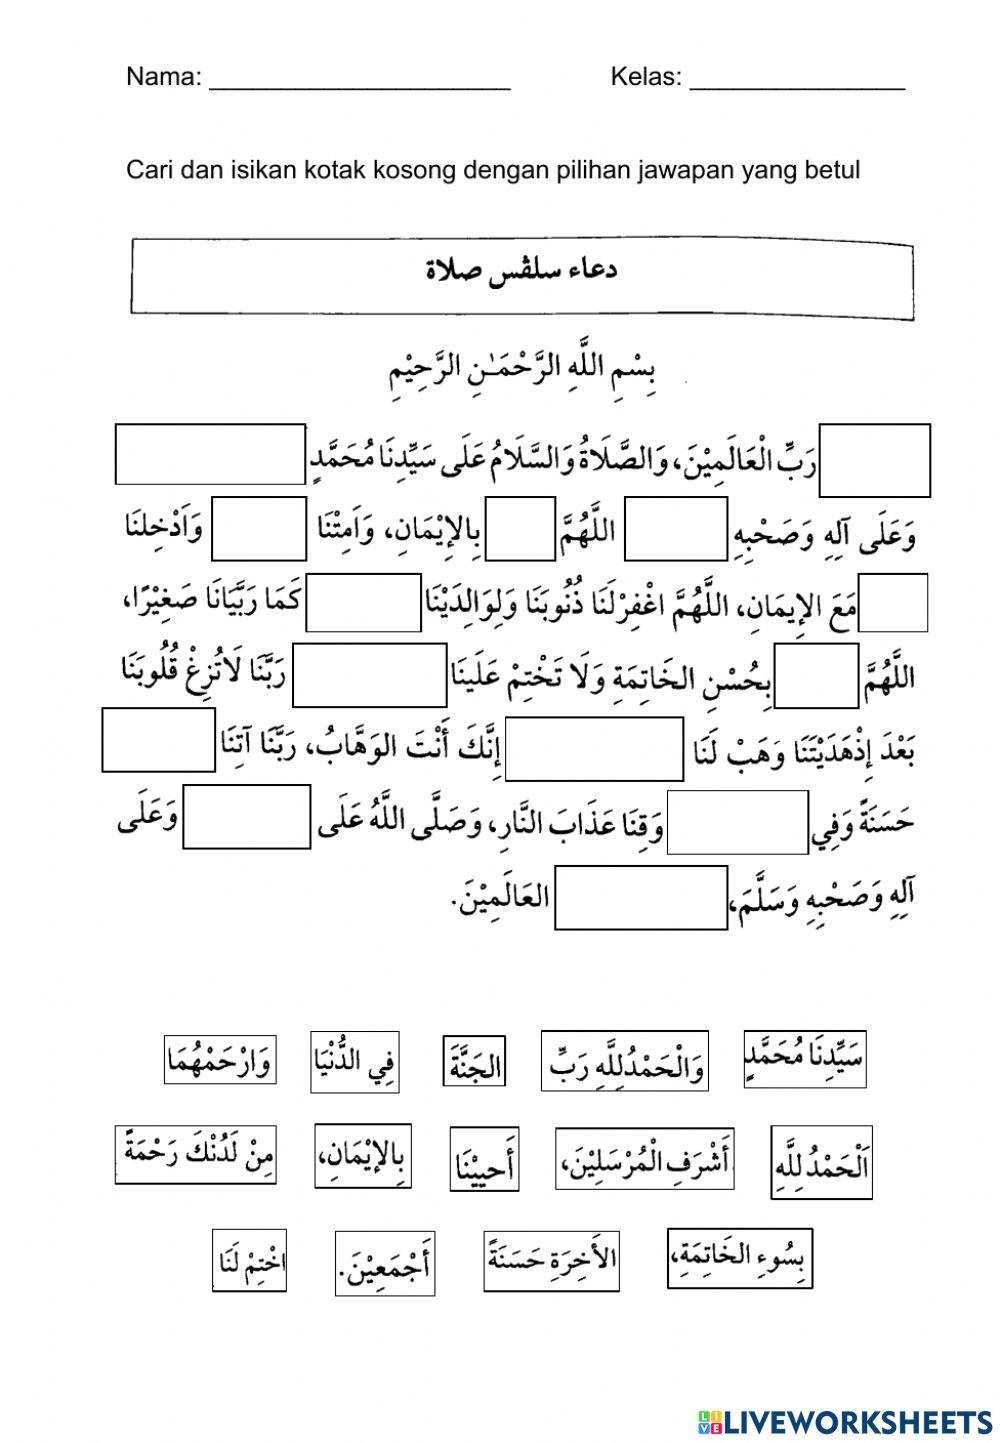 Nama: ______________________ Kelas: ________________
Cari dan isikan kotak kosong dengan pilihan jawapan yang betul
دعاء سلڤس صلاة
بِسْمِ اللَّهِ الرَّحْمَـٰنِ الرَّحِيْمِ
رَبِّ الْعَالَمِيْنَ، وَالصَّلَاةُ وَالسَّلَامُ عَلَى سَيِّدِنَا مُحَمَّدٍ
وَعَلَى آلِهِ وَصَحْبِهِ اللَّهُمَّ بِالإِيْمَانِ، وَاَمِتْنَا وَاَدْخِلنَا
مَعَ الإِيمَانِ، اللَّهُمَّ اغْفِرْلَنَا ذُنُوبَنَا وَلِوَالِدَيْنَا كَمَا رَبَّيَانَا صَغِيْرًا،
اللَّهُمَّ بِحُسْنِ الخَاتِمَةِ وَلَا تَخْتِمْ عَلَينَا رَبَّنَا لَاتُزِغْ قُلُوبَنَا
بَعْدَ إِذْهَدَيْتَنَا وَهَبْ لَنَا إِنَّكَ أَنْتَ الوَهَّابُ، رَبَّنَا آتِنَا
حَسَنَةً وَفِي وَقِنَا عَذَابَ النَّارِ، وَصَلَّى اللَّهُ عَلَى وَعَلَى
آلِهِ وَصَحْبِهِ وَسَلَّمَ، العَالَمِيْنَ.
سَيِّدِنَا مُحَمَّدٍ وَالْحَمْدُلِلَّهِ رَبِّ الجَنَّةَ فِي الدُّنْيَا وَارْحَمْهُمَا
اَلْحَمْدُ لِلَّهِ أَشْرَفِ الْمُرْسَلِيْنَ، أَحيِيْنَا بِالإِيْمَانِ، مِنْ لَدُنْكَ رَحْمَةً
بِسُوءِ الخَاتِمَةِ، الأَخِرَةِ حَسَنَةً أَجْمَعِيْنَ. اخْتِمْ لَنَا
LIVE LIVEWORKSHEETS